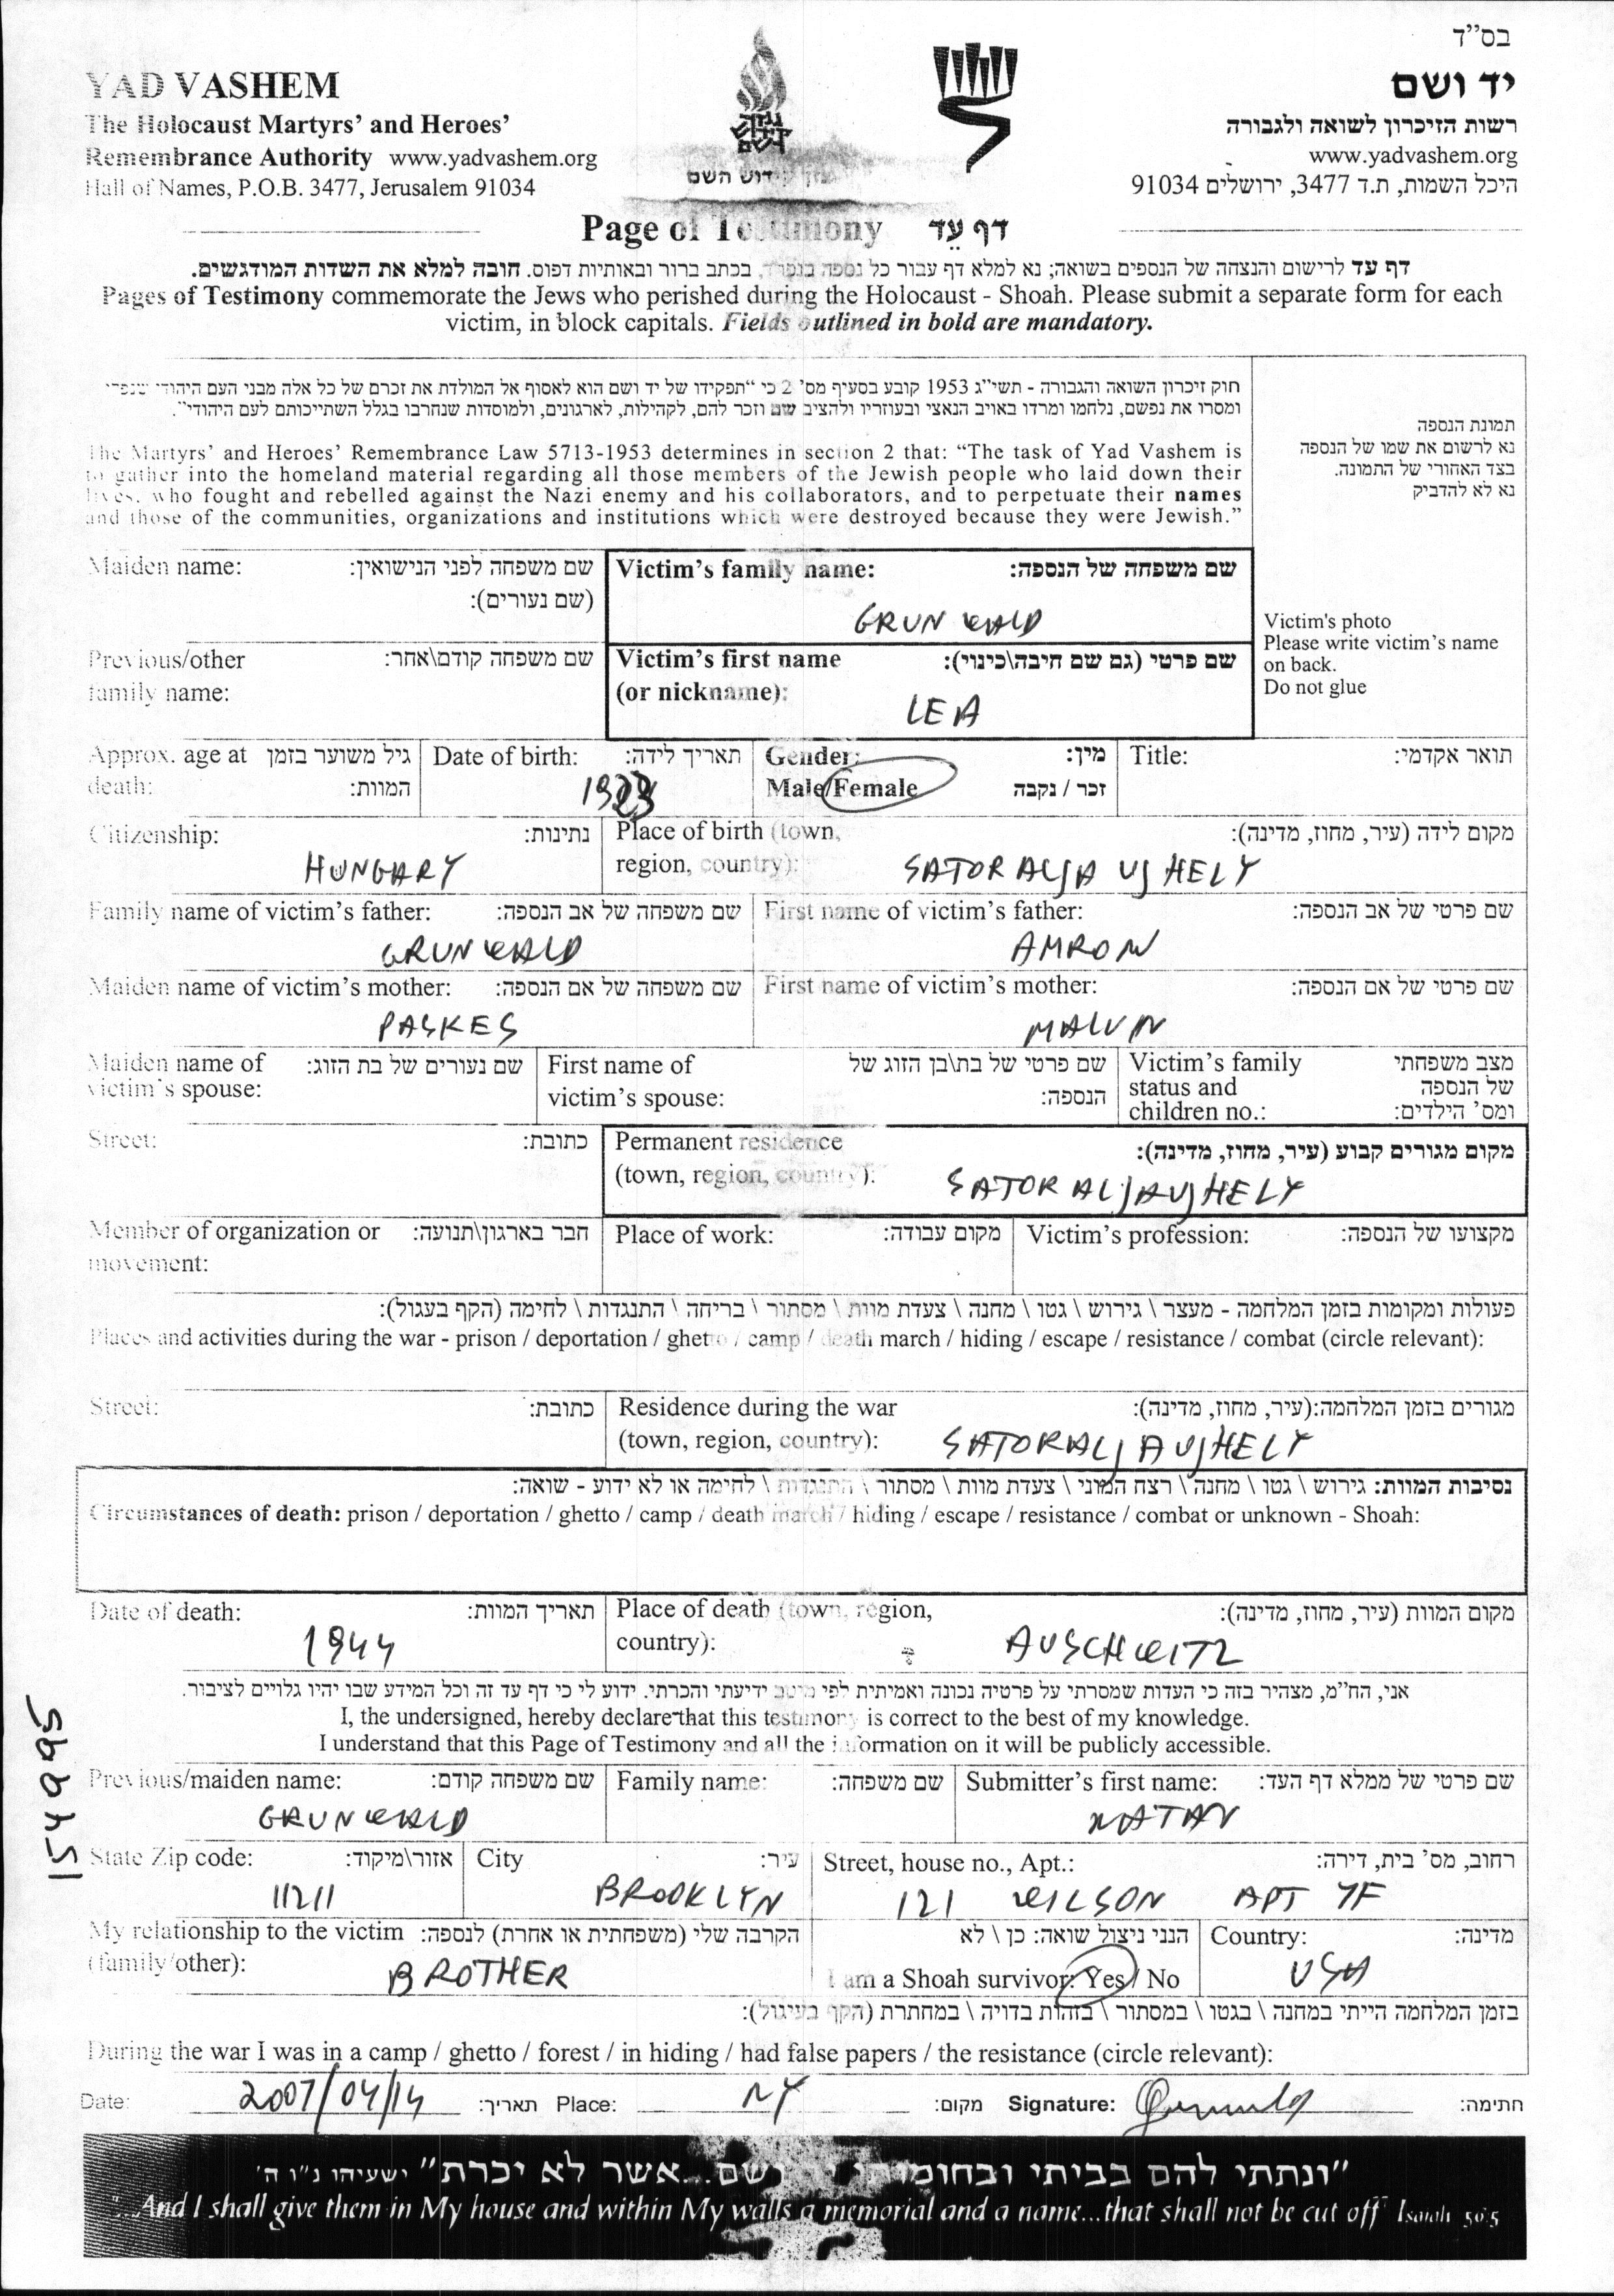 בס"ד
YAD VASHEM
The Holocaust Martyrs' and Heroes'
Remembrance Authority www.yadvashem.org
Hall of Names, P.O.B. 3477, Jerusalem 91034
יד ושם
רשות הזיכרון לשואה ולגבורה
www.yadvashem.org
היכל השמות, ת.ד 3477, ירושלים 91034
Page of Testimony דף עֵד
דף עד לרישום והנצחה של הנספים בשואה; נא למלא דף עבור כל נספה בנפרד, בכתב ברור ובאותיות דפוס. חובה למלא את השדות המודגשים.
Pages of Testimony commemorate the Jews who perished during the Holocaust - Shoah. Please submit a separate form for each
victim, in block capitals. Fields outlined in bold are mandatory.
חוק זיכרון השואה והגבורה - תשי"ג 1953 קובע בסעיף מס' 2 כי "תפקידו של יד ושם הוא לאסוף אל המולדת את זכרם של כל אלה מבני העם היהודי שנפלו
ומסרו את נפשם, נלחמו ומרדו באויב הנאצי ובעוזריו ולהציב שם וזכר להם, לקהילות, לארגונים, ולמוסדות שנחרבו בגלל השתייכותם לעם היהודי".
The Martyrs' and Heroes' Remembrance Law 5713-1953 determines in section 2 that: "The task of Yad Vashem is
to gather into the homeland material regarding all those members of the Jewish people who laid down their
lives, who fought and rebelled against the Nazi enemy and his collaborators, and to perpetuate their names
and those of the communities, organizations and institutions which were destroyed because they were Jewish."
תמונת הנספה
נא לרשום את שמו של הנספה
בצד האחורי של התמונה.
נא לא להדביק
Victim's photo
Please write victim's name
on back.
Do not glue
Maiden name: שם משפחה לפני הנישואין:
(שם נעורים):
Victim's family name: שם משפחה של הנספה:
GRUNWALD
Previous/other שם משפחה קודם\אחר:
family name:
Victim's first name שם פרטי (גם שם חיבה\כינוי):
(or nickname):
LEA
Approx. age at גיל משוער בזמן
death: המוות:
Date of birth: תאריך לידה:
Gender: מין:
Male/Female זכר / נקבה
Title: תואר אקדמי:
Citizenship: נתינות:
HUNGARY
Place of birth (town, מקום לידה (עיר, מחוז, מדינה):
region, country):
SATORALJA UJHELY
Family name of victim's father: שם משפחה של אב הנספה:
GRUNWALD
First name of victim's father: שם פרטי של אב הנספה:
AMROM
Maiden name of victim's mother: שם משפחה של אם הנספה:
PASKES
First name of victim's mother: שם פרטי של אם הנספה:
MALVIN
Maiden name of שם נעורים של בת הזוג:
victim's spouse:
First name of שם פרטי של בת\בן הזוג של
victim's spouse: הנספה:
Victim's family מצב משפחתי
status and של הנספה
children no.: ומס' הילדים:
Street: כתובת:
Permanent residence מקום מגורים קבוע (עיר, מחוז, מדינה):
(town, region, country):
SATORALJAUJHELY
Member of organization or חבר בארגון\תנועה:
movement:
Place of work: מקום עבודה:
Victim's profession: מקצועו של הנספה:
פעולות ומקומות בזמן המלחמה - מעצר \ גירוש \ גטו \ מחנה \ צעדת מוות \ מסתור \ בריחה \ התנגדות \ לחימה (הקף בעגול):
Places and activities during the war - prison / deportation / ghetto / camp / death march / hiding / escape / resistance / combat (circle relevant):
Street: כתובת:
Residence during the war מגורים בזמן המלחמה:(עיר, מחוז, מדינה):
(town, region, country):
SATORALJAUJHELY
נסיבות המוות: גירוש \ גטו \ מחנה \ רצח המוני \ צעדת מוות \ מסתור \ התנגדות \ לחימה או לא ידוע - שואה:
Circumstances of death: prison / deportation / ghetto / camp / death march / hiding / escape / resistance / combat or unknown - Shoah:
Date of death: תאריך המוות:
1944
Place of death (town, region, מקום המוות (עיר, מחוז, מדינה):
country):
AUSCHWITZ
אני, הח"מ, מצהיר בזה כי העדות שמסרתי על פרטיה נכונה ואמיתית לפי מיטב ידיעתי והכרתי. ידוע לי כי דף עד זה וכל המידע שבו יהיו גלויים לציבור.
I, the undersigned, hereby declare that this testimony is correct to the best of my knowledge.
I understand that this Page of Testimony and all the information on it will be publicly accessible.
Previous/maiden name: שם משפחה קודם:
GRUNWALD
Family name: שם משפחה:
Submitter's first name: שם פרטי של ממלא דף העד:
NATAN
State Zip code: אזור\מיקוד:
11211
City עיר:
BROOKLYN
Street, house no., Apt.: רחוב, מס' בית, דירה:
121 WILSON APT 7F
My relationship to the victim הקרבה שלי (משפחתית או אחרת) לנספה:
(family/other):
BROTHER
הנני ניצול שואה: כן \ לא
I am a Shoah survivor: Yes / No
Country: מדינה:
USA
בזמן המלחמה הייתי במחנה \ בגטו \ במסתור \ בזהות בדויה \ במחתרת (הקף בעיגול):
During the war I was in a camp / ghetto / forest / in hiding / had false papers / the resistance (circle relevant):
Date: 2007/04/14 תאריך: Place: NY מקום: Signature: חתימה:
"ונתתי להם בביתי ובחומתי ושם...אשר לא יכרת" ישעיהו נ"ו ה'
"...And I shall give them in My house and within My walls a memorial and a name...that shall not be cut off" Isaiah 56:5